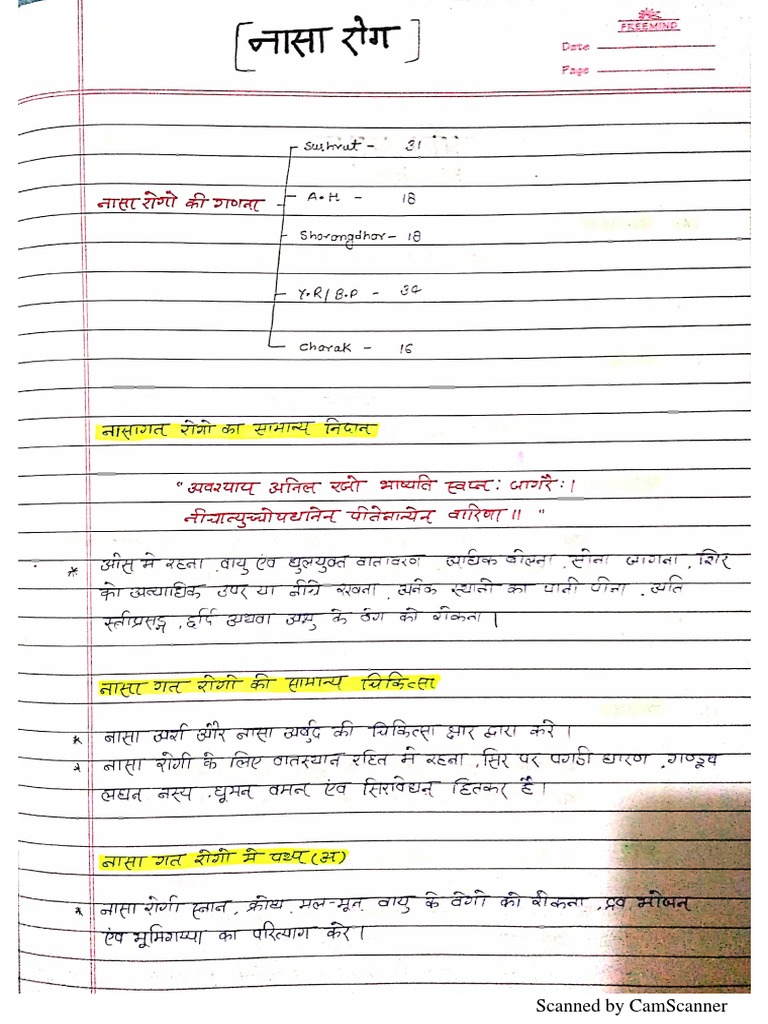 [नासा रोग]
FREEMIND
Date
Page
Sushrut - 31
नासा रोगो की गणना
A.H - 18
Sharangdhar - 18
Y.R/B.P - 34
Charak - 16
नासागत रोगो का सामान्य निदान
"अवश्याय अनिल रजो भाष्यति स्वप्नः जागरैः।
नीचात्युच्चोपधानेन पीतेनान्येन वारिणा॥"
* ओस मे रहना, वायु एंव धुलयुक्त वातावरण, अधिक बोलना, सोना जागना, शिर
को अत्याधिक उपर या नीचे रखना, अनेक स्थानो का पानी पीना, अति
स्त्रीप्रसङ्ग, छर्दि अथवा अश्रु के वेग को रोकना।
नासा गत रोगो की सामान्य चिकित्सा
* नासा अर्श और नासा अर्बुद की चिकित्सा क्षार द्वारा करे।
* नासा रोगी के लिए वातस्थान रहित मे रहना, सिर पर पगडी धारण, गण्डूष
लघन नस्य, धूमन वमन एंव सिरावेधन हितकर है।
नासा गत रोगो मे पथ्य (अ)
* नासा रोगी स्नान, क्रोध, मल-मूत्र, वायु के वेगो को रोकना, द्रव भोजन
एंव भूमिशय्या का परित्याग करे।
Scanned by CamScanner